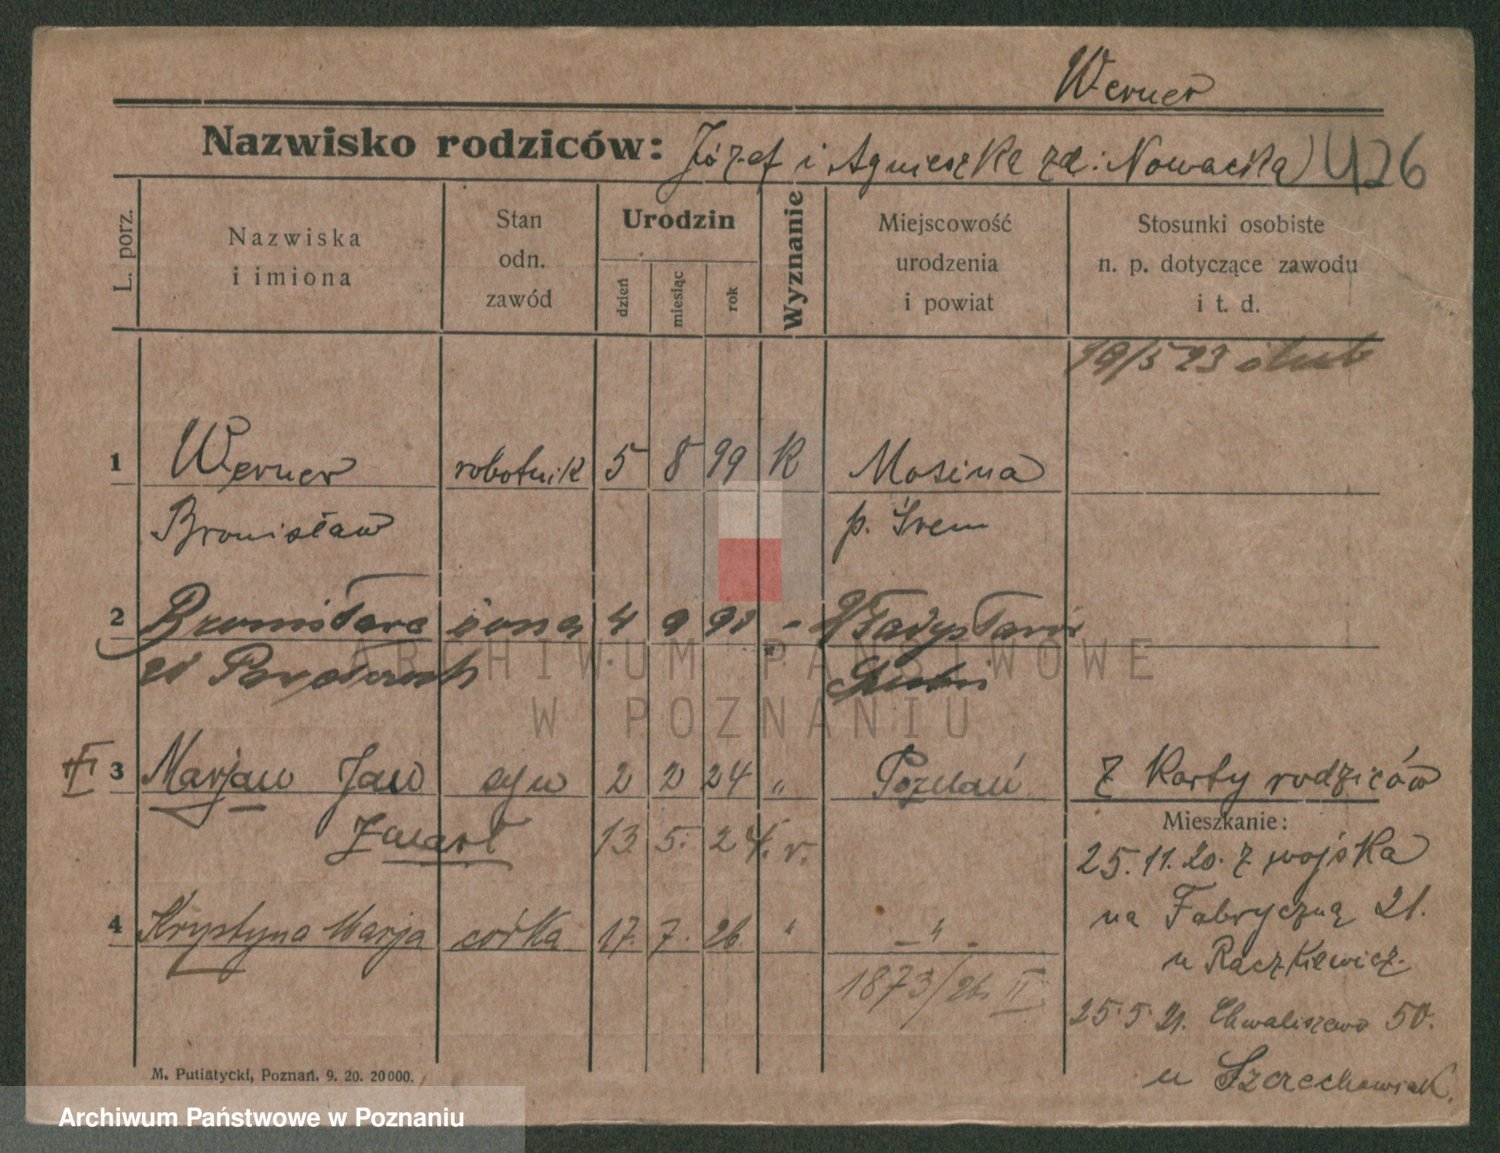 Werner
Nazwisko rodziców: Józef i Agnieszka zd: Nowacka 426
L. porz.
Nazwiska i imiona
Stan odn. zawód
Urodzin
dzień
miesiąc
rok
Wyznanie
Miejscowość urodzenia i powiat
Stosunki osobiste n. p. dotyczące zawodu i t. d.
19/5 23 ślub
1 Werner robotnik 5 8 99 K Mosina
Bronisław p. Śrem
2 Bronisława żona 4 9 98 - Władysławów
zd
3 Marjan Jan syn 2 2 24 " Poznań z Karty rodziców
Mieszkanie:
zmarł 13 5. 24. r.
25.11.20. z wojska
4 Krystyna Marja córka 17. 7. 26 " - " -
na Fabryczną 21.
u Raczkiewicz.
1873/26 II
25 5 21. Chwaliszewo 50.
u Szczechowiak.
M. Putiatycki, Poznań. 9. 20. 20000.
ARCHIWUM PAŃSTWOWE
W POZNANIU
Archiwum Państwowe w Poznaniu